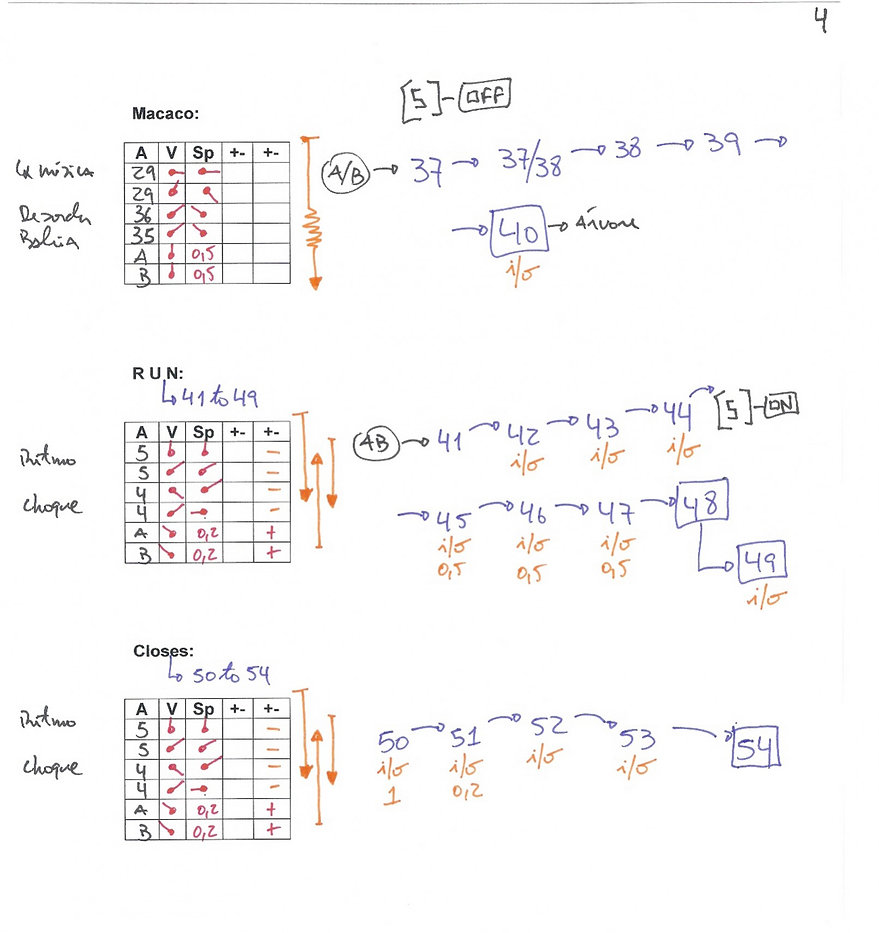 4
[5]-OFF
Macaco:
A V Sp +- +-
29
29
36
35
A 0,5
B 0,5
A/B → 37 → 37/38 → 38 → 39 →
→ 40 → Árvore
i/o
R U N:
↳ 41 to 49
Ritmo
Choque
A V Sp +- +-
5 -
5 -
4 -
4 -
A 0,2 +
B 0,2 +
AB → 41 → 42 → 43 → 44 → [5]-ON
i/o i/o i/o
→ 45 → 46 → 47 → 48
i/o i/o i/o
0,5 0,5 0,5
49
i/o
Closes:
↳ 50 to 54
Ritmo
Choque
A V Sp +- +-
5 -
5 -
4 -
4 -
A 0,2 +
B 0,2 +
50 → 51 → 52 → 53 → 54
i/o i/o i/o i/o
1 0,2